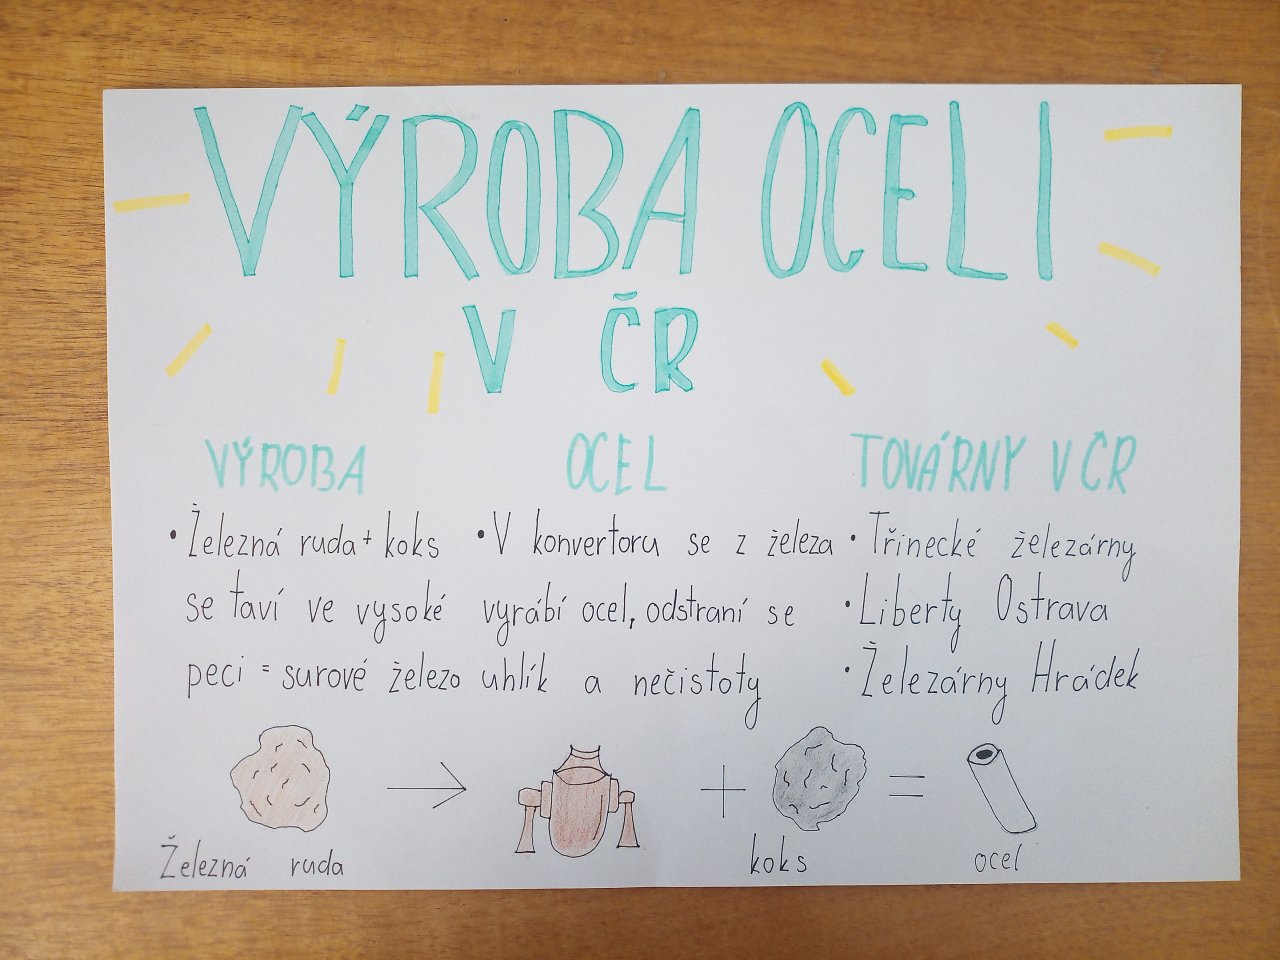 VÝROBA OCELI
V ČR
VÝROBA
• Železná ruda + koks
se taví ve vysoké
peci = surové železo
OCEL
• V konvertoru se z železa
vyrábí ocel, odstraní se
uhlík a nečistoty
TOVÁRNY V ČR
• Třinecké železárny
• Liberty Ostrava
• Železárny Hrádek
→ + =
Železná ruda
koks
ocel